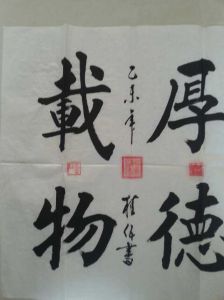 厚德
載物
乙未年
桂保書